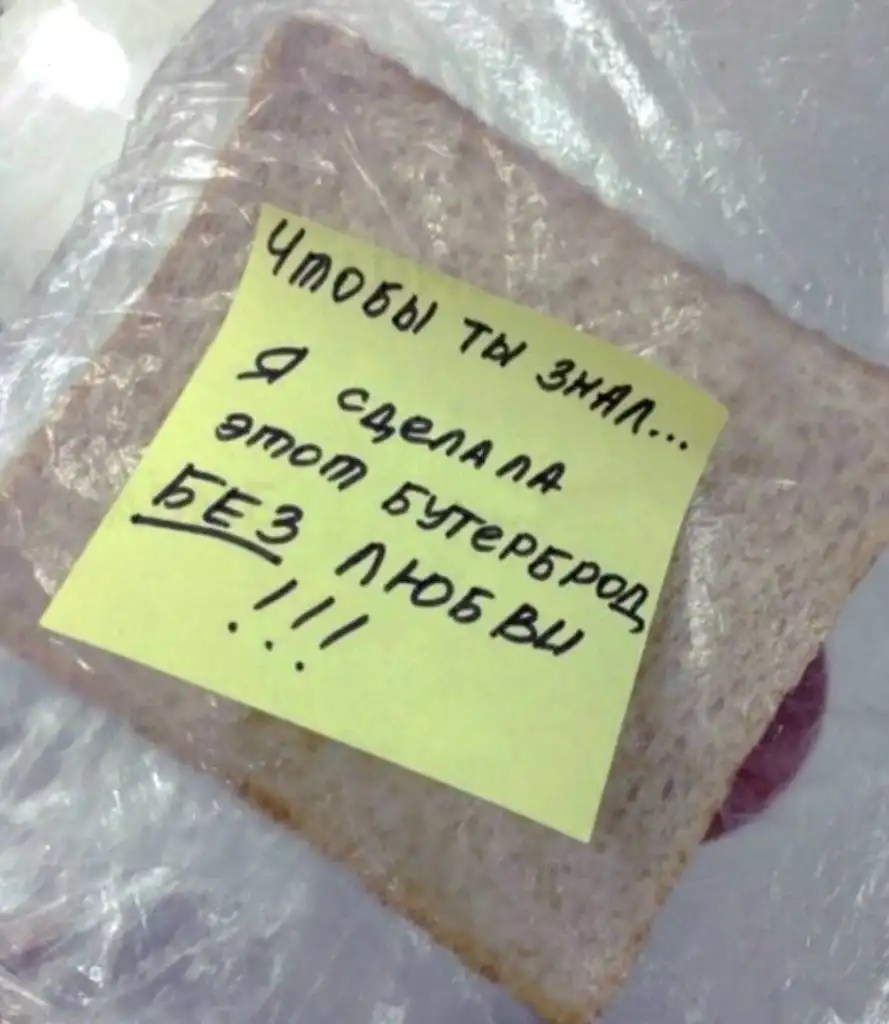 Чтобы ты знал...
Я сделала
этот бутерброд
БЕЗ ЛЮБВИ
!!!